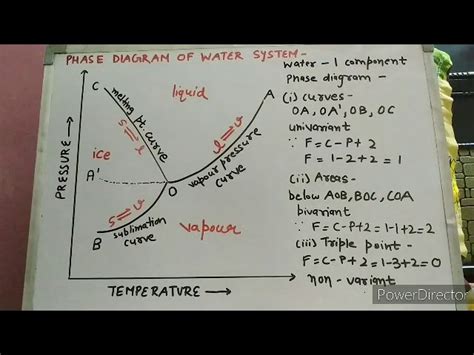 PHASE DIAGRAM OF WATER SYSTEM-
C
melting pt. curve
S⇌l
liquid
A
l⇌v
vapour pressure
curve
ice
A'
O
S⇌v
B
sublimation
curve
vapour
PRESSURE →
TEMPERATURE →
water - 1 component
Phase diagram -
(i) curves -
OA, OA', OB, OC
univariant
∵ F=C-P+2
F=1-2+2=1
(ii) Areas-
below AOB, BOC, COA
bivariant
∵ F=C-P+2=1-1+2=2
(iii) Triple point-
F=C-P+2=1-3+2=0
non-variant
PowerDirector